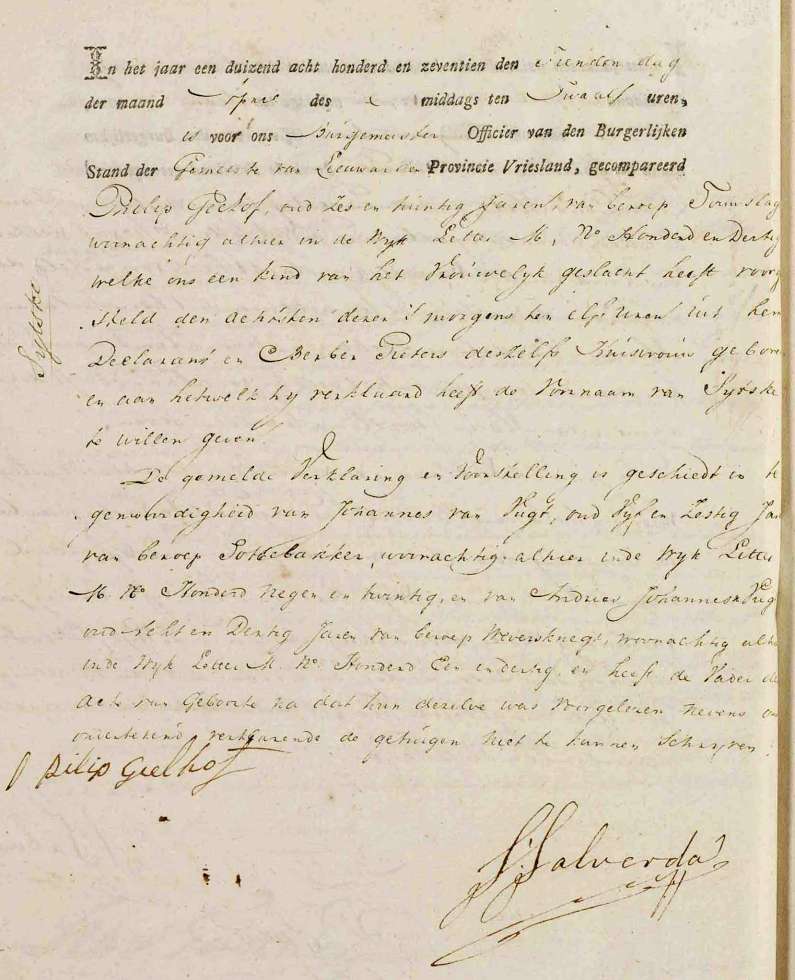 In het jaar een duizend acht honderd en zeventien den Tienden dag
der maand April des middags ten Twaalf uren,
is voor ons Burgemeester Officier van den Burgerlijken
Stand der Gemeente van Leeuwarden Provincie Vriesland, gecompareerd
Philip Geelhof, oud Zes en twintig Jaren, van beroep
woonachtig alhier in de Wyk Letter M, No Honderd en Dertig
welke ons een kind van het Vrouwelyk geslacht heeft voorg
steld den achtsten dezer 's morgens ten elf Uren uit hem
Declarant en Berber Pieters deszelfs Huisvrouw gebore
en aan hetwelk hy verklaard heeft de Voornaam van Sytske
te willen geven.
Sytske
De gemelde Verklaring en Voorstelling is geschied in te
genwoordigheid van Johannes van Vugt, oud Vyf en Zestig Jar
van beroep Pottebakker, woonachtig alhier in de Wyk Letter
M. No Honderd Negen en twintig, en van Andries Johannes Vug
oud Acht en Dertig Jaren van beroep Weversknegt, woonachtig alhi
in de Wyk Letter M. No Honderd Een en dertig, en heeft de Vader de
Acte van Geboorte na dat hun dezelve was voorgelezen nevens on
onderteekend verklarende de getuigen niet te kunnen Schryven.
pilip Geelhof
Salverda